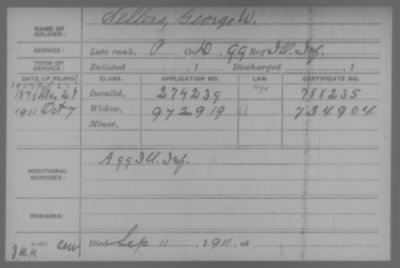 NAME OF SOLDIER: Sellers, George W.
SERVICE: Late rank, P Co. D, 99 Reg Ill. Inf.
TERM OF SERVICE: Enlisted , 1 Discharged , 1
DATE OF FILING. CLASS. APPLICATION NO. LAW. CERTIFICATE NO.
1879 28 Invalid, 274239 788235
1911 Oct 7 Widow, 972919 734904
Minor,
ADDITIONAL SERVICES: A 99 Ill. Inf.
REMARKS:
Died Sep 11, 1911, at